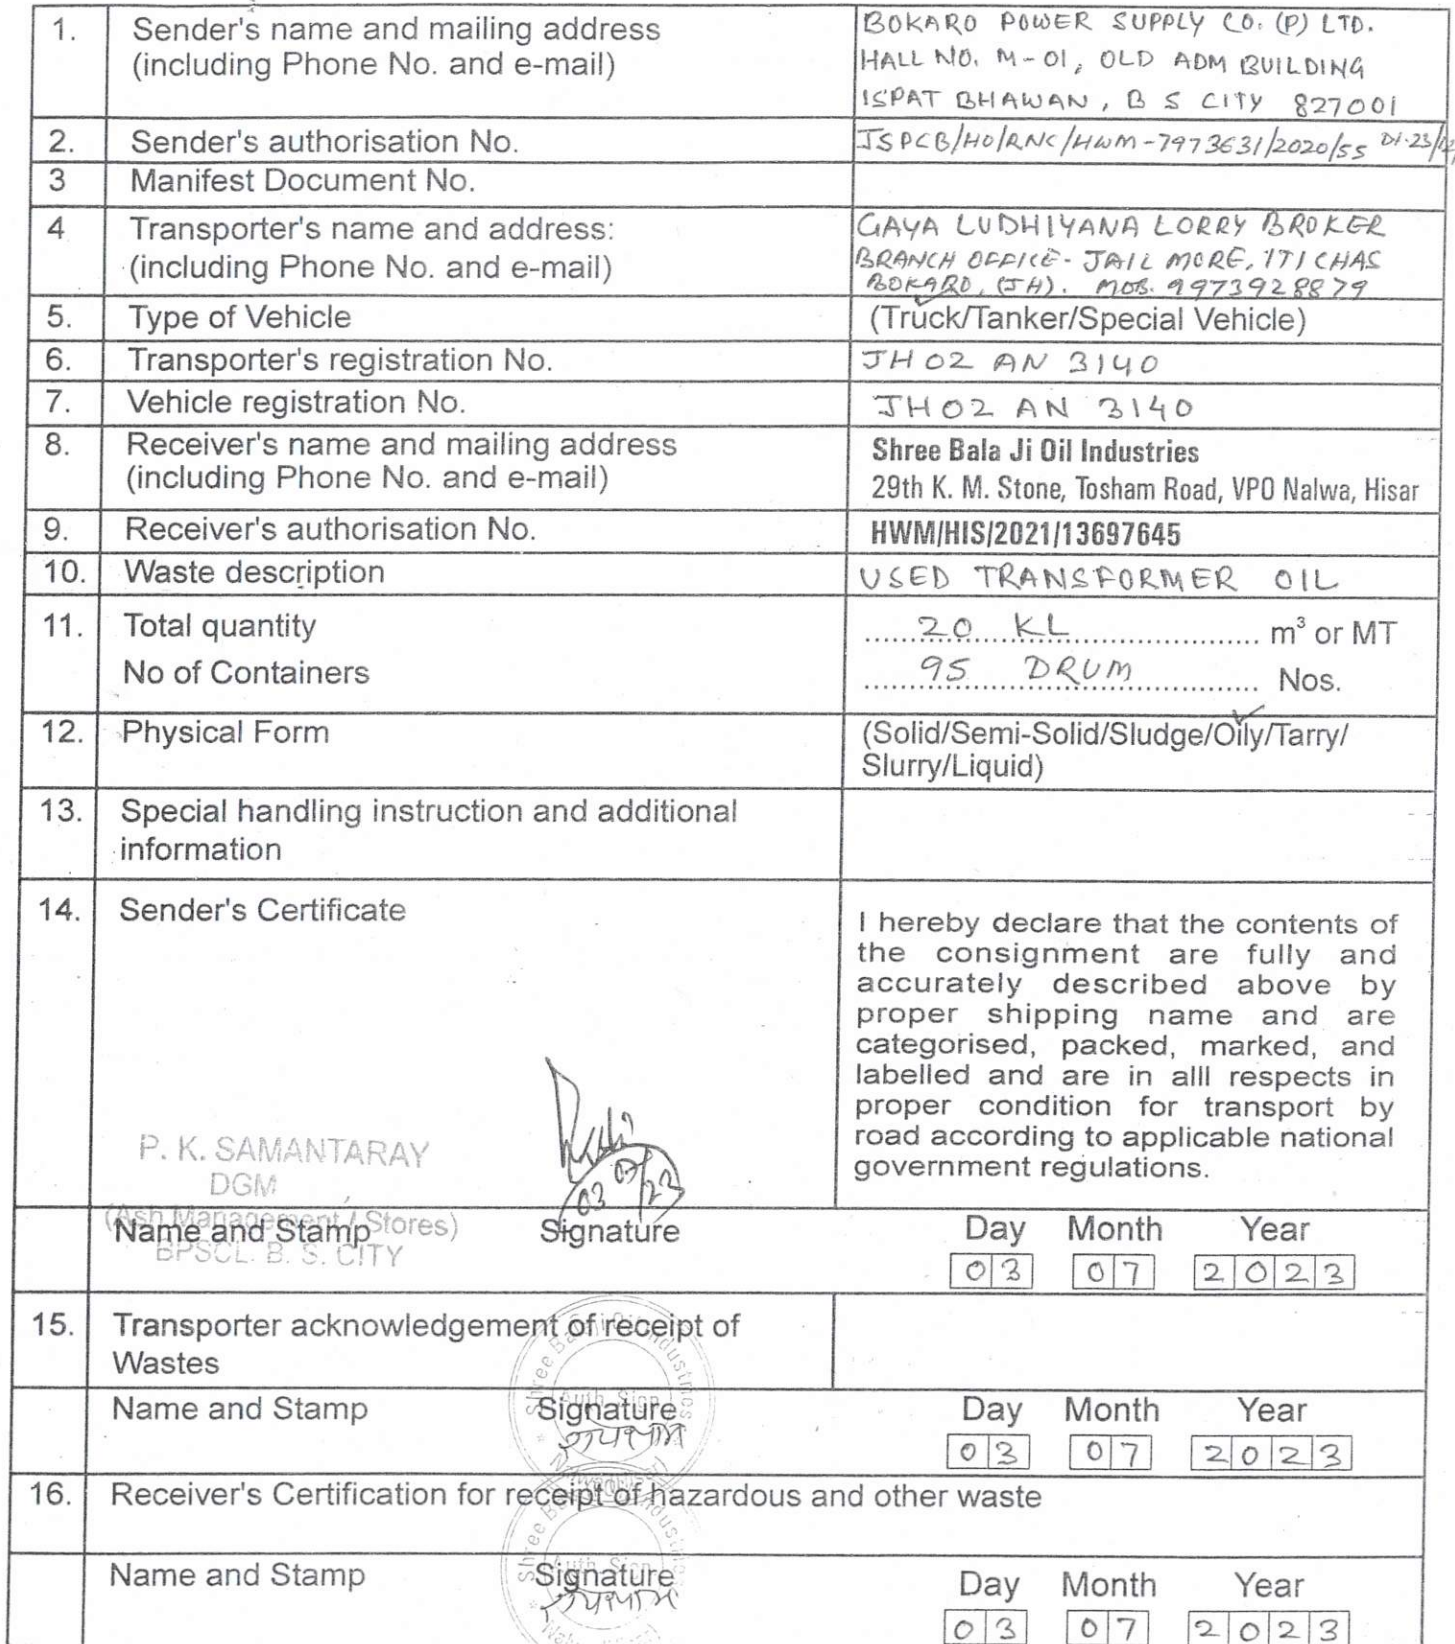 1. Sender's name and mailing address
(including Phone No. and e-mail)
BOKARO POWER SUPPLY CO. (P) LTD.
HALL NO. M-01, OLD ADM BUILDING
ISPAT BHAWAN, B S CITY 827001
2. Sender's authorisation No.
JSPCB/HO/RNC/HWM-7973631/2020/55 Dt-23/
3 Manifest Document No.
4 Transporter's name and address:
(including Phone No. and e-mail)
GAYA LUDHIYANA LORRY BROKER
BRANCH OFFICE- JAIL MORE, ITI CHAS
BOKARO, (JH). MOB. 9973928879
5. Type of Vehicle
(Truck/Tanker/Special Vehicle)
6. Transporter's registration No.
JH02 AN 3140
7. Vehicle registration No.
JH02 AN 3140
8. Receiver's name and mailing address
(including Phone No. and e-mail)
Shree Bala Ji Oil Industries
29th K. M. Stone, Tosham Road, VPO Nalwa, Hisar
9. Receiver's authorisation No.
HWM/HIS/2021/13697645
10. Waste description
USED TRANSFORMER OIL
11. Total quantity
20 KL m³ or MT
No of Containers
95 DRUM Nos.
12. Physical Form
(Solid/Semi-Solid/Sludge/Oily/Tarry/
Slurry/Liquid)
13. Special handling instruction and additional
information
14. Sender's Certificate
I hereby declare that the contents of
the consignment are fully and
accurately described above by
proper shipping name and are
categorised, packed, marked, and
labelled and are in alll respects in
proper condition for transport by
road according to applicable national
government regulations.
P. K. SAMANTARAY
DGM
(Ash Management / Stores)
BPSCL. B. S. CITY
03/07/23
Name and Stamp Signature Day Month Year
03 07 2023
15. Transporter acknowledgement of receipt of
Wastes
Shree Bala Ji Oil Industries
Auth. Sign.
Name and Stamp Signature Day Month Year
03 07 2023
16. Receiver's Certification for receipt of hazardous and other waste
Shree Bala Ji Oil Industries
Auth. Sign.
Name and Stamp Signature Day Month Year
03 07 2023